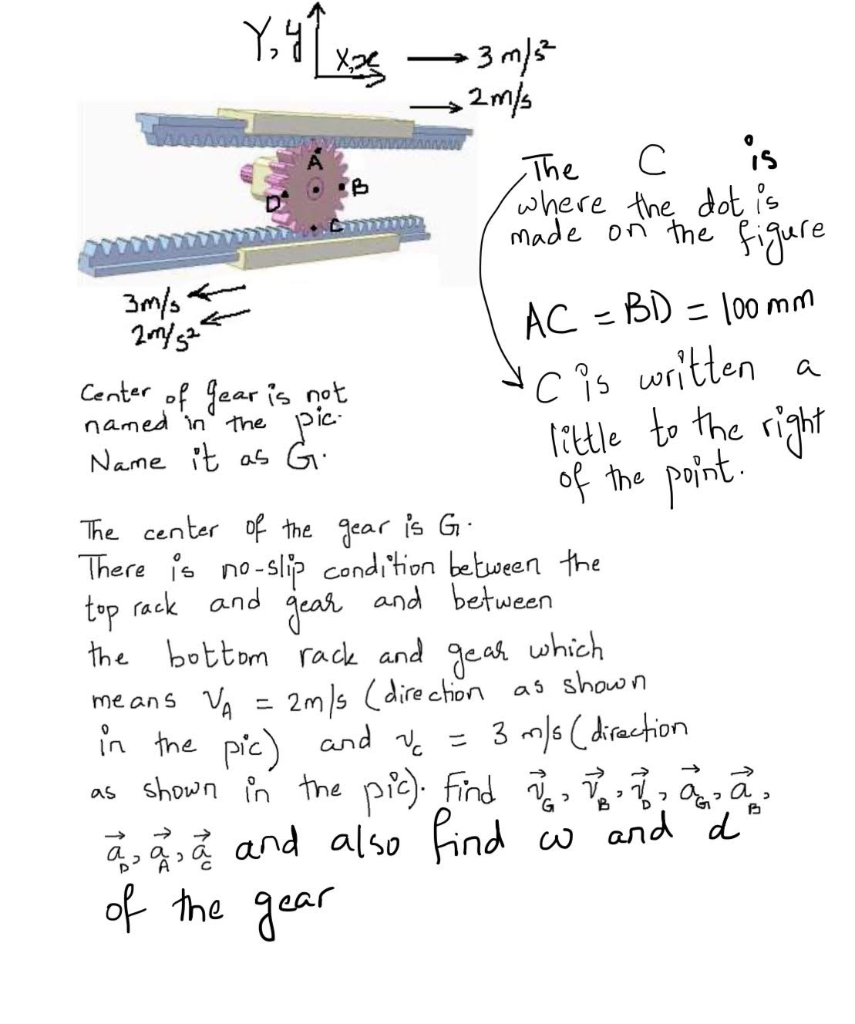 Y, y
X, x
→ 3 m/s²
→ 2m/s
A
B
D
C
3m/s ←
2m/s² ←
The C is
where the dot is
made on the figure
AC = BD = 100 mm
C is written a
little to the right
of the point.
Center of gear is not
named in the pic.
Name it as G.
The center of the gear is G.
There is no-slip condition between the
top rack and gear and between
the bottom rack and gear which
means v_A = 2m/s (direction as shown
in the pic) and v_c = 3 m/s (direction
as shown in the pic). Find v⃗_G, v⃗_B, v⃗_D, a⃗_G, a⃗_B,
a⃗_D, a⃗_A, a⃗_C and also find ω and d
of the gear